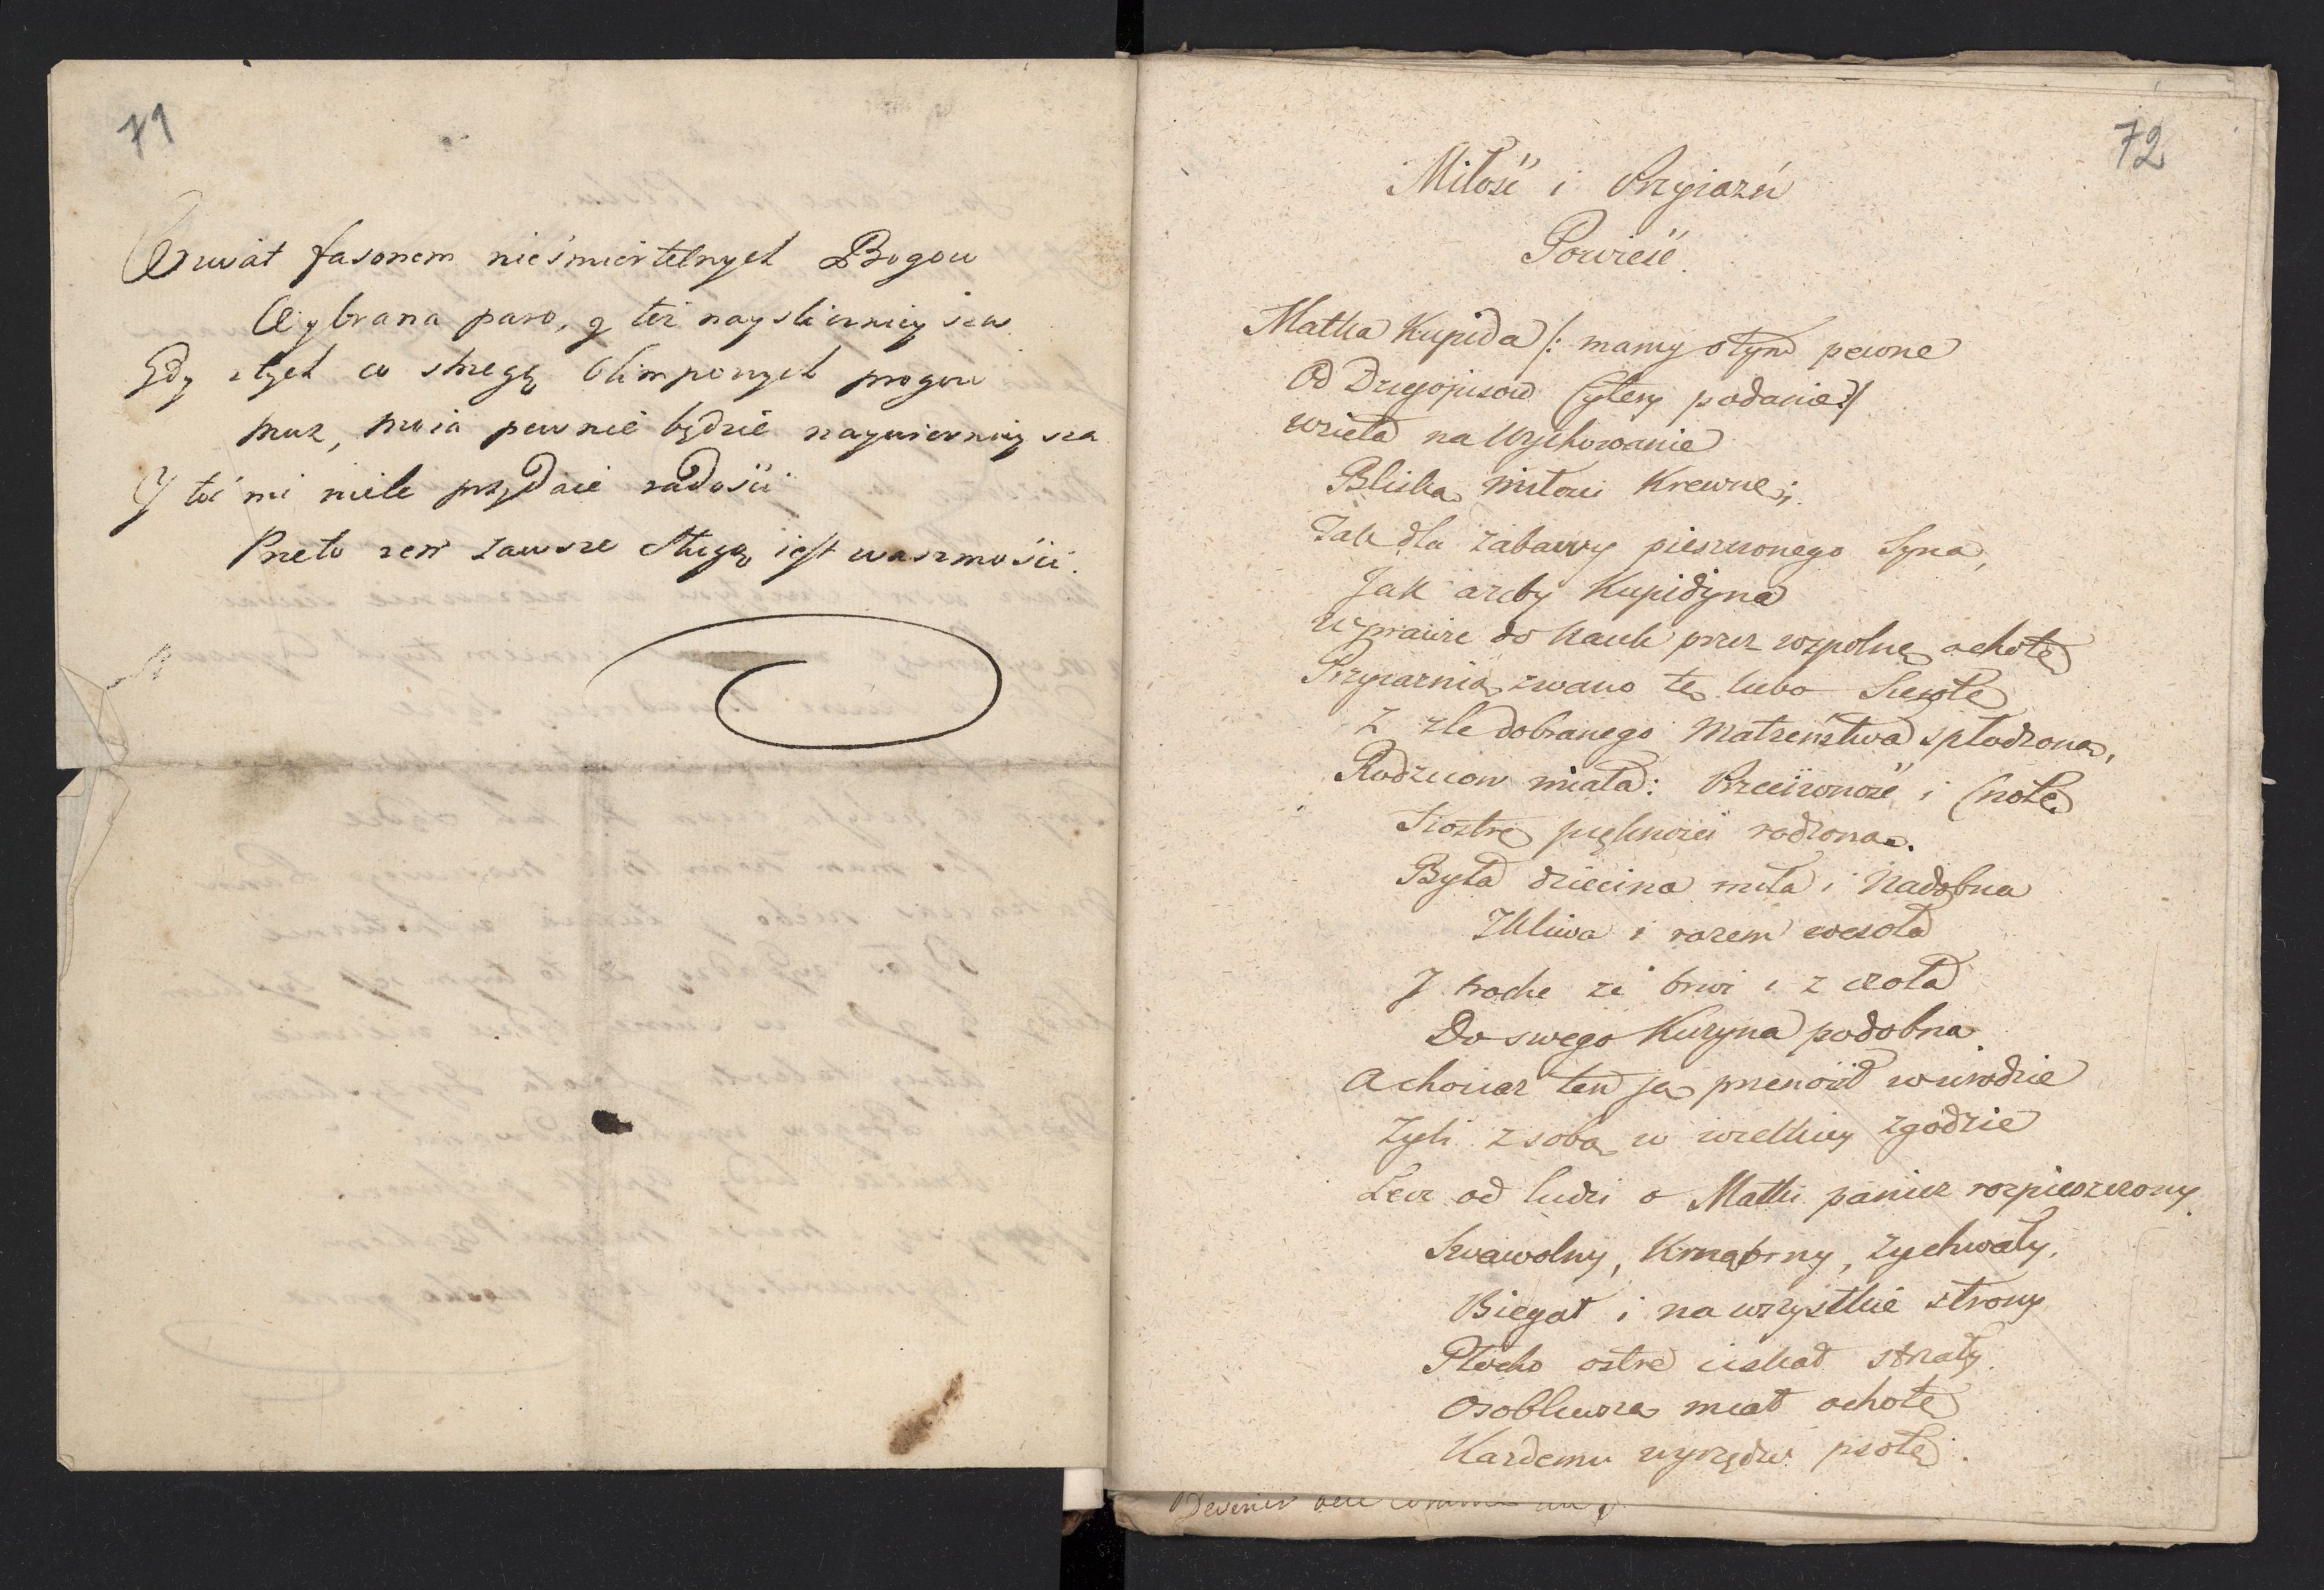 71
fasonem nieśmiertelnych Bogow
Wybrana paro, y też nayslicznieysza
Gdy z tych co strzegą Olimpowych progow
Muz, moia pewnie będzie naywiernieysza
Y toć mi niele przydaie radości
Przeto zem zawsze sługą iest waszmości.
72
Miłość i Przyiazń
Powieść.
Matka Kupida /: mamy o tym pewne
Od Dzieiopisow Cytery podanie :/
wzieła na Wychowanie
Bliską miłości Krewnę;
Jak dla zabawy pieszczonego Syna,
Jak ażeby Kupidyna
wprawić do Nauk przez wspolną ochotę
Przyiaznią zwano tę lubo Sierotę
Z źle dobranego Małżeństwa spłodzona,
Rodzicow miała: Przeciwność i Cnotę
Siostrę piękności rodzoną.
Była dziecina miła i Nadobna
Tkliwa i razem wesoła
J troche ze brwi i z czoła
Do swego Kuzyna podobna.
A chociaz ten ją przenosił w urodzie
Zyli z sobą w wielkiey zgodzie
Lecz od ludzi o Matki panicz rozpieszczony
Swawolny, Krnąbrny, Zuchwały,
Biegał i na wszystkie strony
Płocho ostre ciskał strzały.
Osobliwszą miał ochotę
Kazdemu wyrządzać psotę.